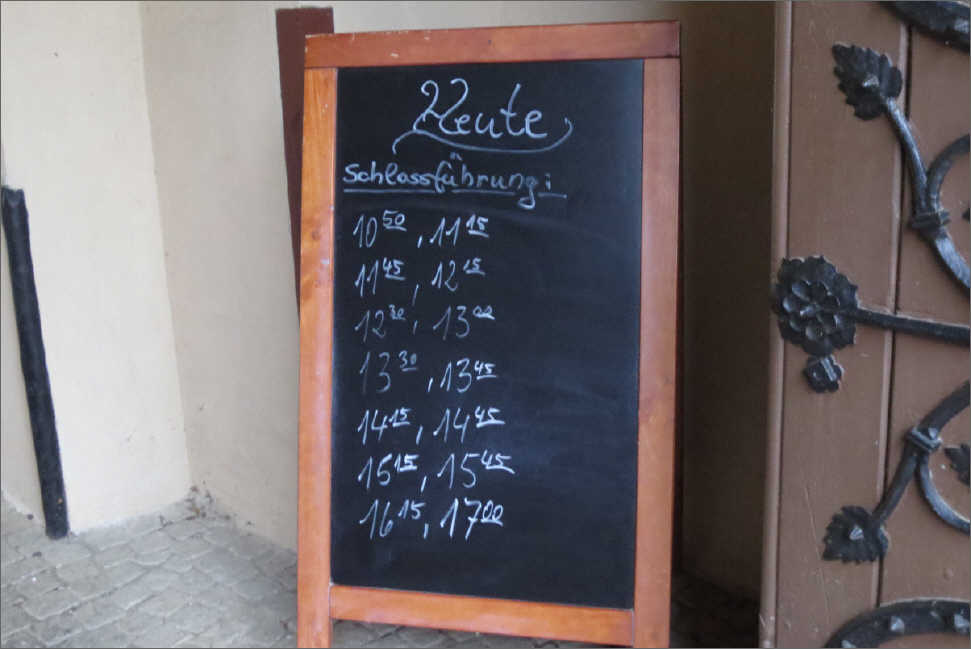 Heute
Schlossführung:
10⁵⁰, 11¹⁵
11⁴⁵, 12¹⁵
12³⁰, 13⁰⁰
13³⁰, 13⁴⁵
14¹⁵, 14⁴⁵
15¹⁵, 15⁴⁵
16¹⁵, 17⁰⁰